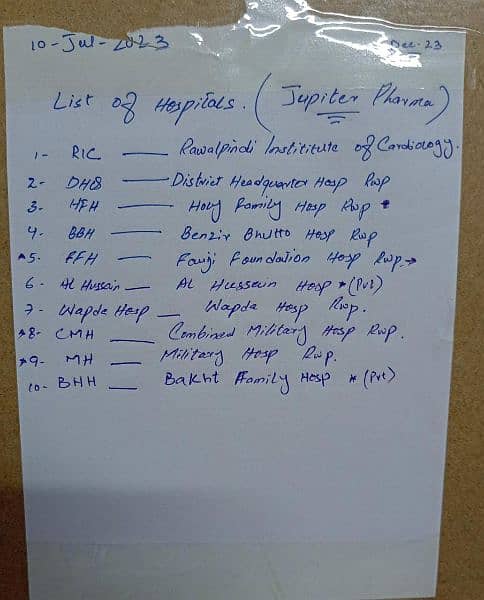 10-Jul-2023 Dec-23
List of Hospitals. (Jupiter Pharma)
1- RIC — Rawalpindi Instititute of Cardiology.
2- DHQ — District Headquarter Hosp Rwp
3- HFH — Holy Family Hosp Rwp *
4- BBH — Benzir Bhutto Hosp Rwp
*5- FFH — Fauji Foundation Hosp Rwp.→
6- Al Hussain — Al Hussain Hosp * (Pvt)
7- Wapda Hosp — Wapda Hosp Rwp.
*8- CMH — Combined Military Hosp Rwp.
*9- MH — Military Hosp Rwp.
10- BHH — Bakht Family Hosp * (Pvt)